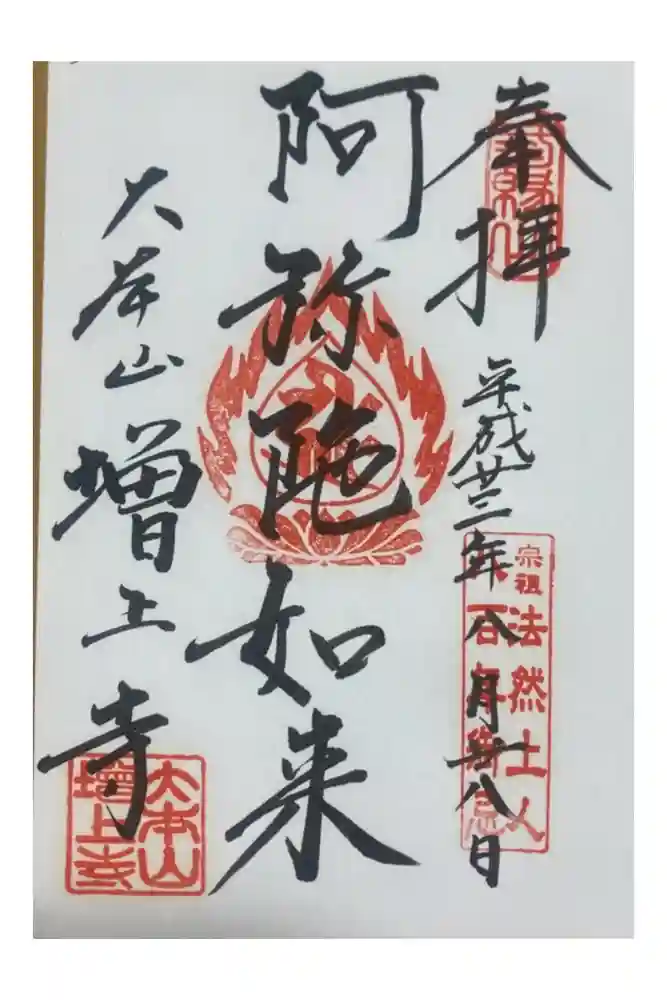 奉拝
平成廿三年八月廿八日
宗祖法然上人
百年御忌
阿弥陀如来
大本山増上寺
大本山
増上寺